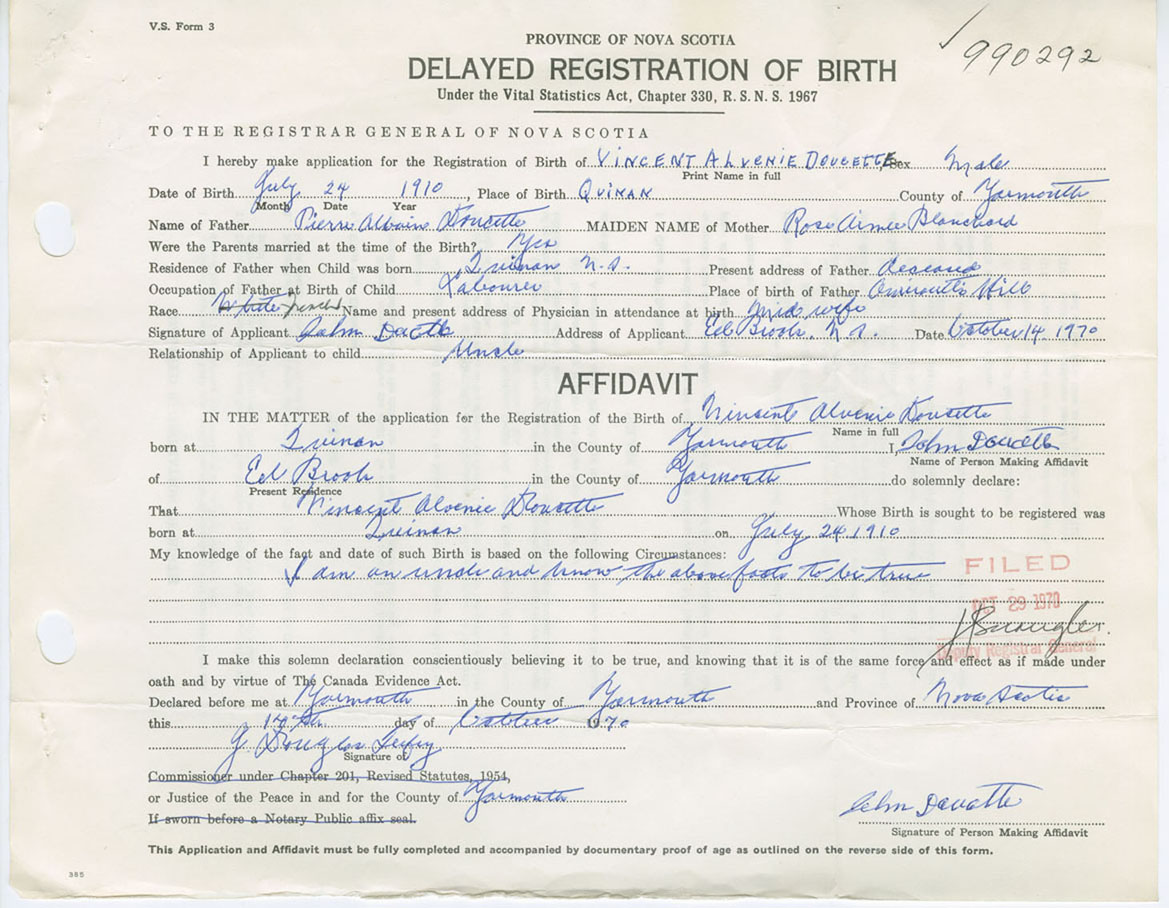 V.S. Form 3
990292
PROVINCE OF NOVA SCOTIA
DELAYED REGISTRATION OF BIRTH
Under the Vital Statistics Act, Chapter 330, R. S. N. S. 1967
TO THE REGISTRAR GENERAL OF NOVA SCOTIA
I hereby make application for the Registration of Birth of VINCENT ALVENIE DOUCETTE Sex Male
Print Name in full
Date of Birth July 24 1910, Place of Birth QUINAN County of Yarmouth
Month Date Year
Name of Father Pierre Doucette MAIDEN NAME of Mother Rose Aimee Blanchard
Were the Parents married at the time of the Birth? Yes
Residence of Father when Child was born Quinan N.S. Present address of Father
Occupation of Father at Birth of Child Labourer Place of birth of Father Hill
Race White French Name and present address of Physician in attendance at birth Midwife
Signature of Applicant John Address of Applicant N.S. Date October 14. 1970
Relationship of Applicant to child Uncle
AFFIDAVIT
IN THE MATTER of the application for the Registration of the Birth of Vincent Alvenie Doucette
Name in full
born at Quinan in the County of Yarmouth I, John Doucette
Name of Person Making Affidavit
of in the County of Yarmouth do solemnly declare:
Present Residence
That Vincent Alvenie Doucette Whose Birth is sought to be registered was
born at Quinan on July 24 1910
My knowledge of the fact and date of such Birth is based on the following Circumstances:
I am an uncle and know the above facts to be true
FILED
OCT 29 1970
Deputy Registrar General
I make this solemn declaration conscientiously believing it to be true, and knowing that it is of the same force and effect as if made under
oath and by virtue of The Canada Evidence Act.
Declared before me at Yarmouth in the County of Yarmouth and Province of Nova Scotia
this 14th day of October 1970
J Douglas
Signature of
Commissioner under Chapter 201, Revised Statutes, 1954,
or Justice of the Peace in and for the County of Yarmouth
If sworn before a Notary Public affix seal.
John Doucette
Signature of Person Making Affidavit
This Application and Affidavit must be fully completed and accompanied by documentary proof of age as outlined on the reverse side of this form.
385